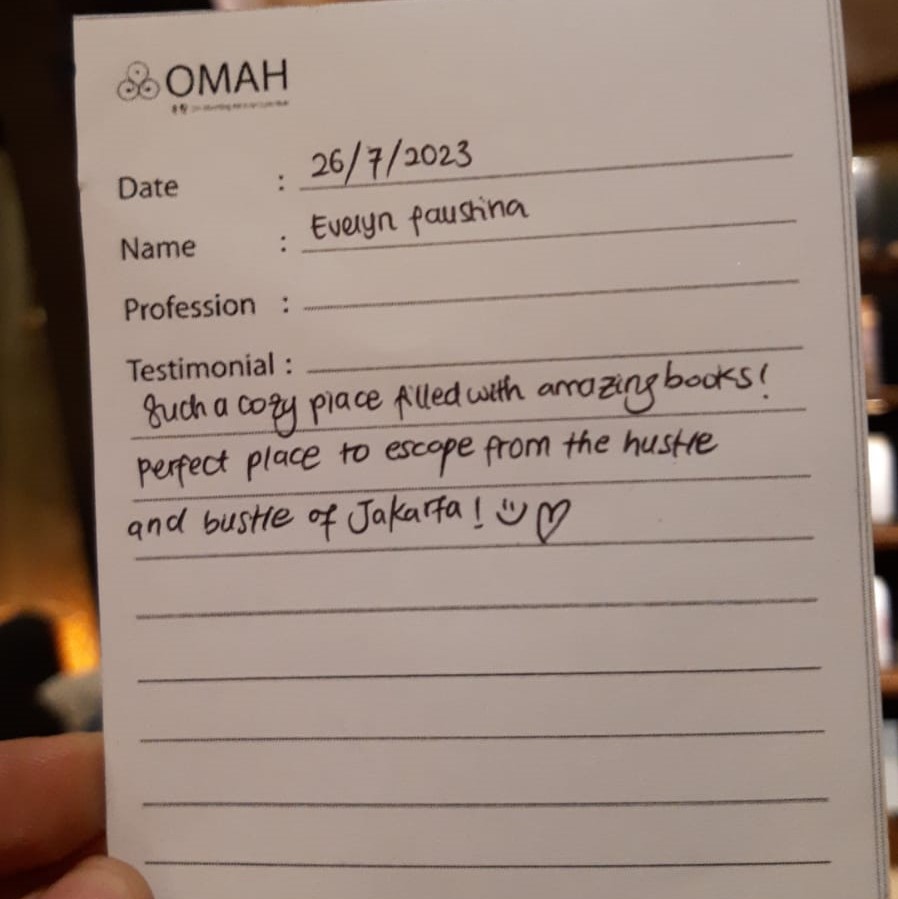 OMAH
Date : 26/7/2023
Name : Evelyn faustina
Profession :
Testimonial :
Such a cozy place filled with amazing books!
perfect place to escape from the hustle
and bustle of Jakarta!